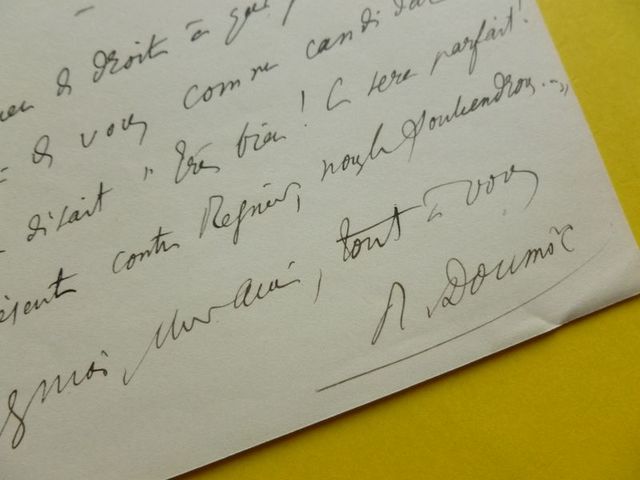 de droit à
de vous comme candidat
disait "très bien! Ce sera parfait!
contre Regnier, nous le soutiendrons..."
tout à vous
R Doumic